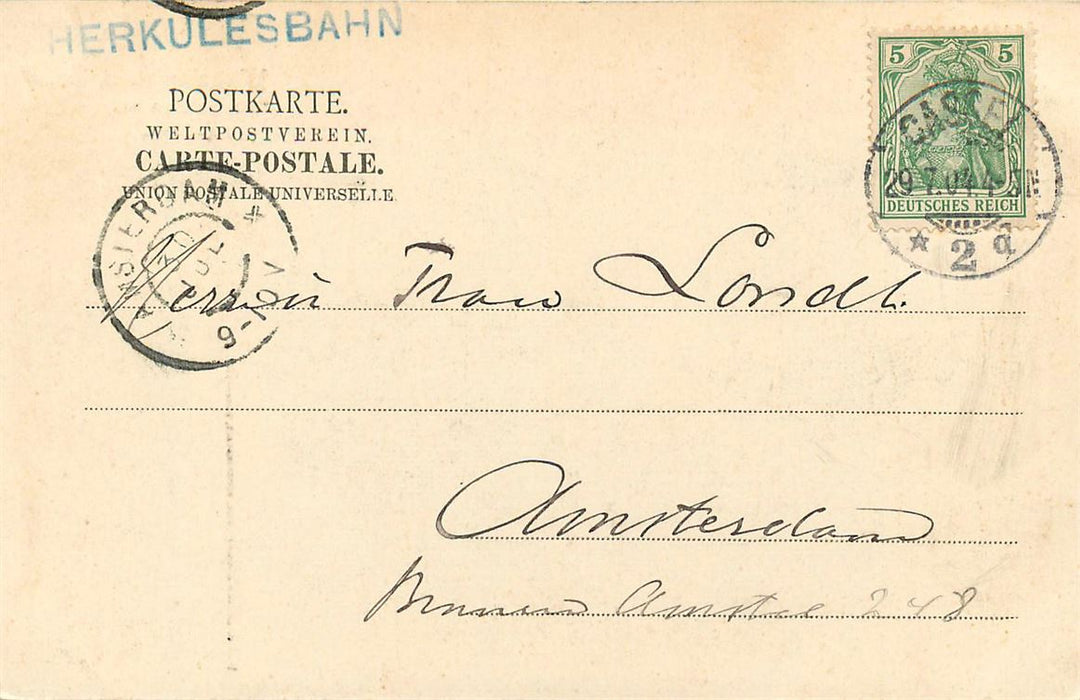 HERKULESBAHN
POSTKARTE.
WELTPOSTVEREIN.
CARTE-POSTALE.
UNION POSTALE UNIVERSELLE
5 5
DEUTSCHES REICH
CASSEL
29.7.04.4-5N
* 2 d
AMSTERDAM *
9-10V
Frau
Amsterdam
Amstel 248